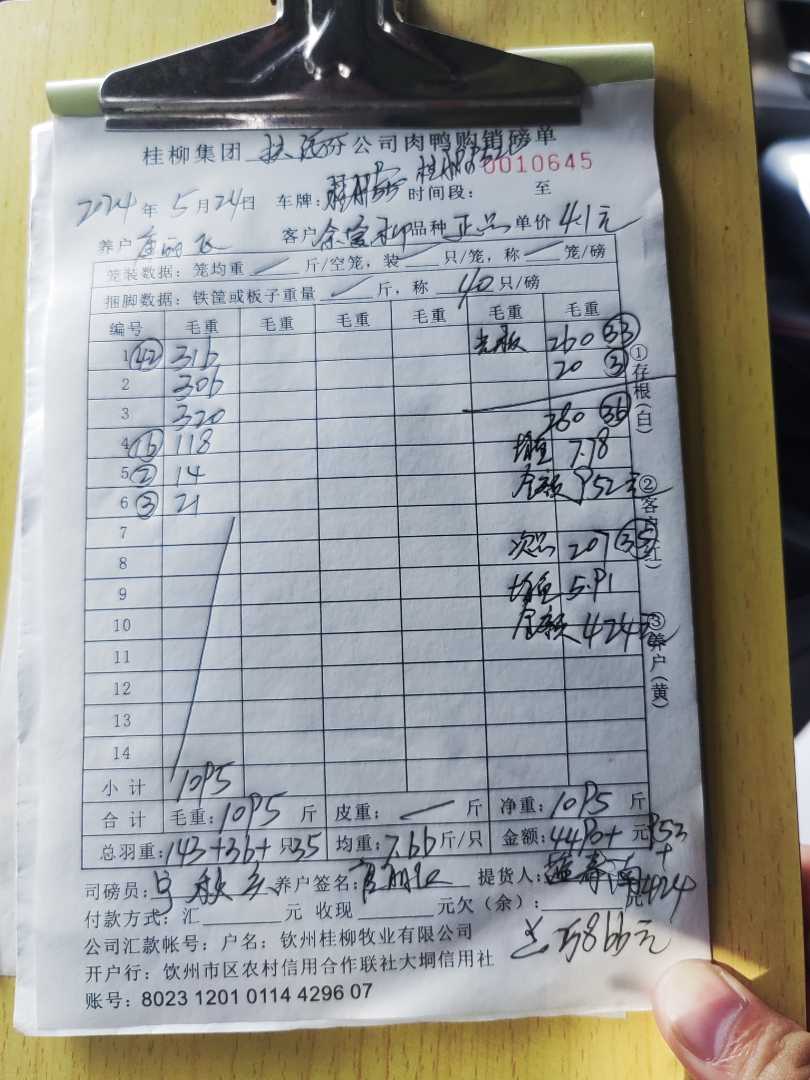 桂柳集团 分公司肉鸭购销磅单
0010645
2024年5月24日 车牌: 时间段: 至
养户 客户 品种 正品 单价 4.1元
笼装数据: 笼均重 斤/空笼, 装 只/笼, 称 笼/磅
捆脚数据: 铁筐或板子重量 斤, 称 40 只/磅
编号 毛重 毛重 毛重 毛重 毛重 毛重
1 (42) 316 光板 260 (33)
2 306 20 (3)
3 320 280 (36)
4 (16) 118 均重 7.78
5 (2) 14 金额 952元
6 (3) 21
7
8 次品 207 (35)
9 均重 5.91
10 金额 424元
11
12
13
14
小计 1095
合计 毛重: 1095 斤 皮重: 斤 净重: 1095 斤
总羽重: 143+36+ 只35 均重: 7.66 斤/只 金额: 4490+ 元 952
+
424
司磅员: 养户签名: 提货人:
付款方式: 汇 元 收现 元欠(余):
公司汇款帐号: 户名: 钦州桂柳牧业有限公司
5866元
开户行: 钦州市区农村信用合作联社大垌信用社
账号: 8023 1201 0114 4296 07
①存根(白)
②客户(红)
③养户(黄)